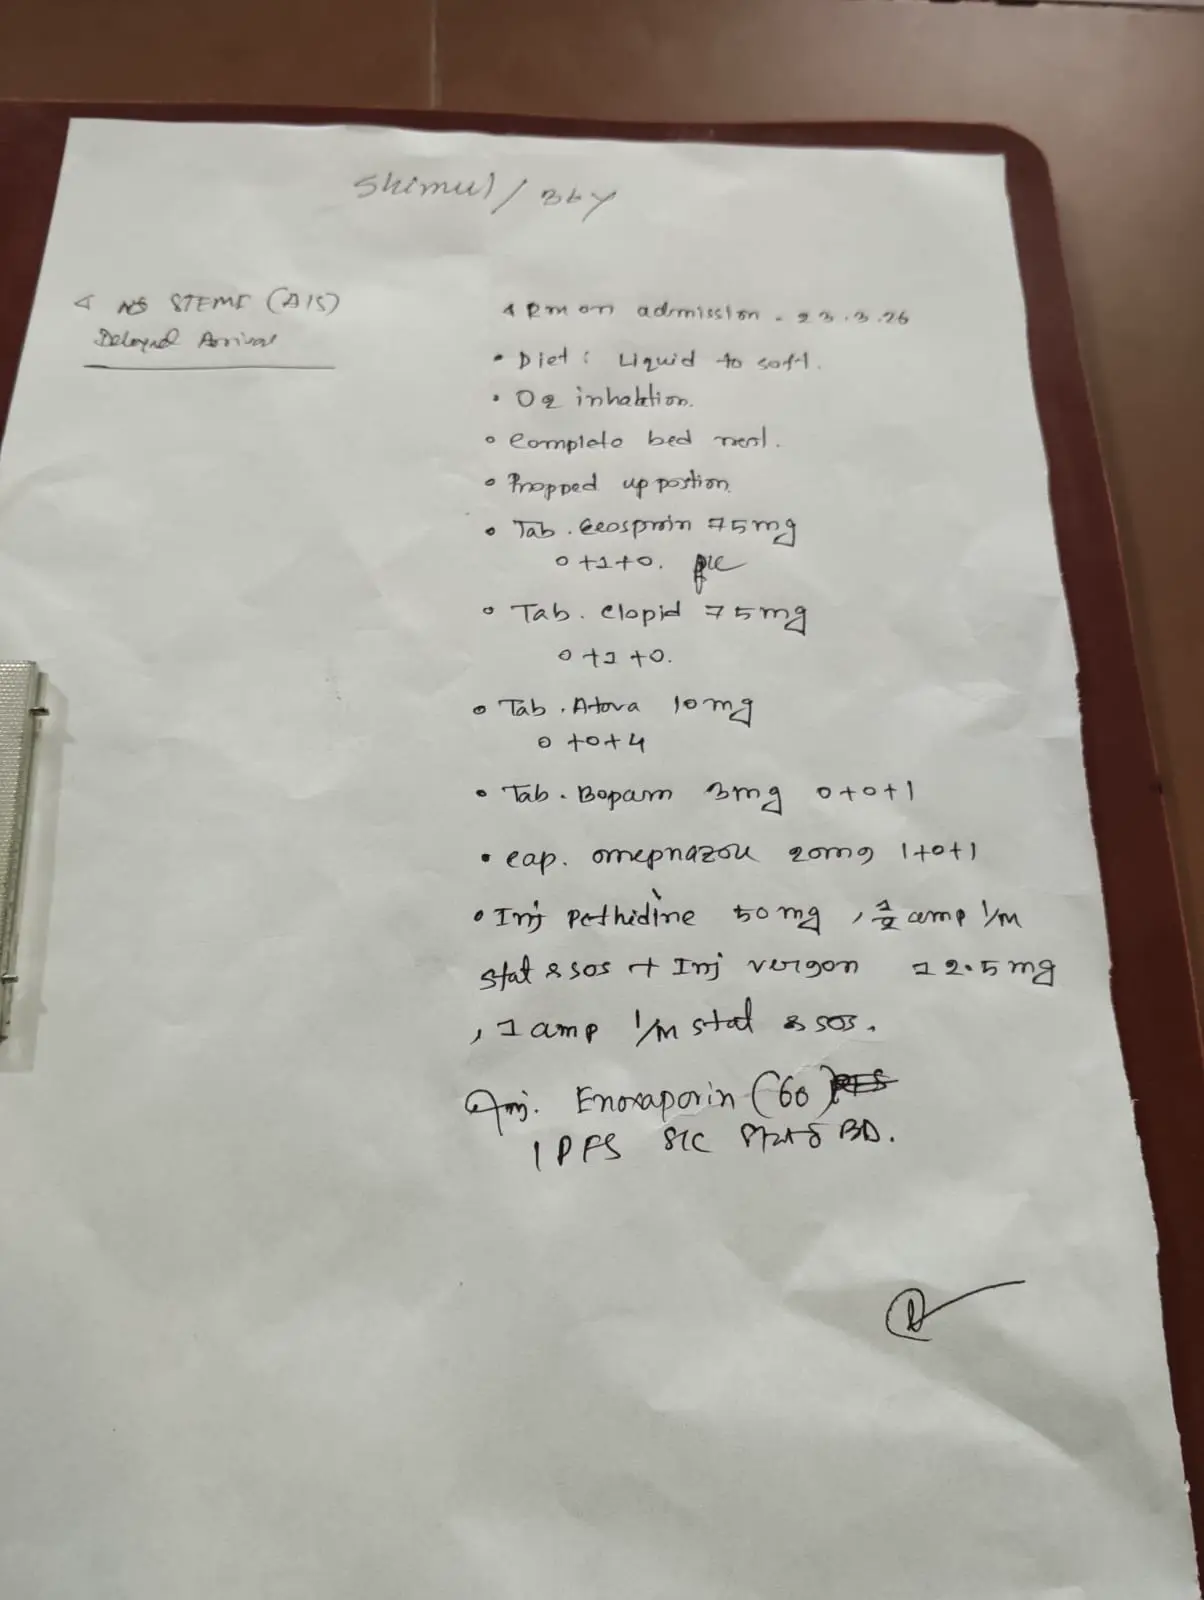 Shimul / 36y
STEMI (AIS)
Delayed Arrival
Rm on admission - 23.3.26
• Diet : Liquid to soft.
• O2 inhalation.
• Complete bed rest.
• Propped up position.
• Tab. Ecosprin 75mg
0+1+0.
• Tab. Clopid 75mg
0+1+0.
• Tab. Atova 10mg
0+0+4
• Tab. Bopam 3mg 0+0+1
• Cap. omeprazole 20mg 1+0+1
• Inj Pethidine 50mg, 1/2 amp I/M
stat & sos + Inj vergon 12.5mg
, 1 amp I/M stat & sos.
Inj. Enoxaparin (60)
1 PFS S/C BD.